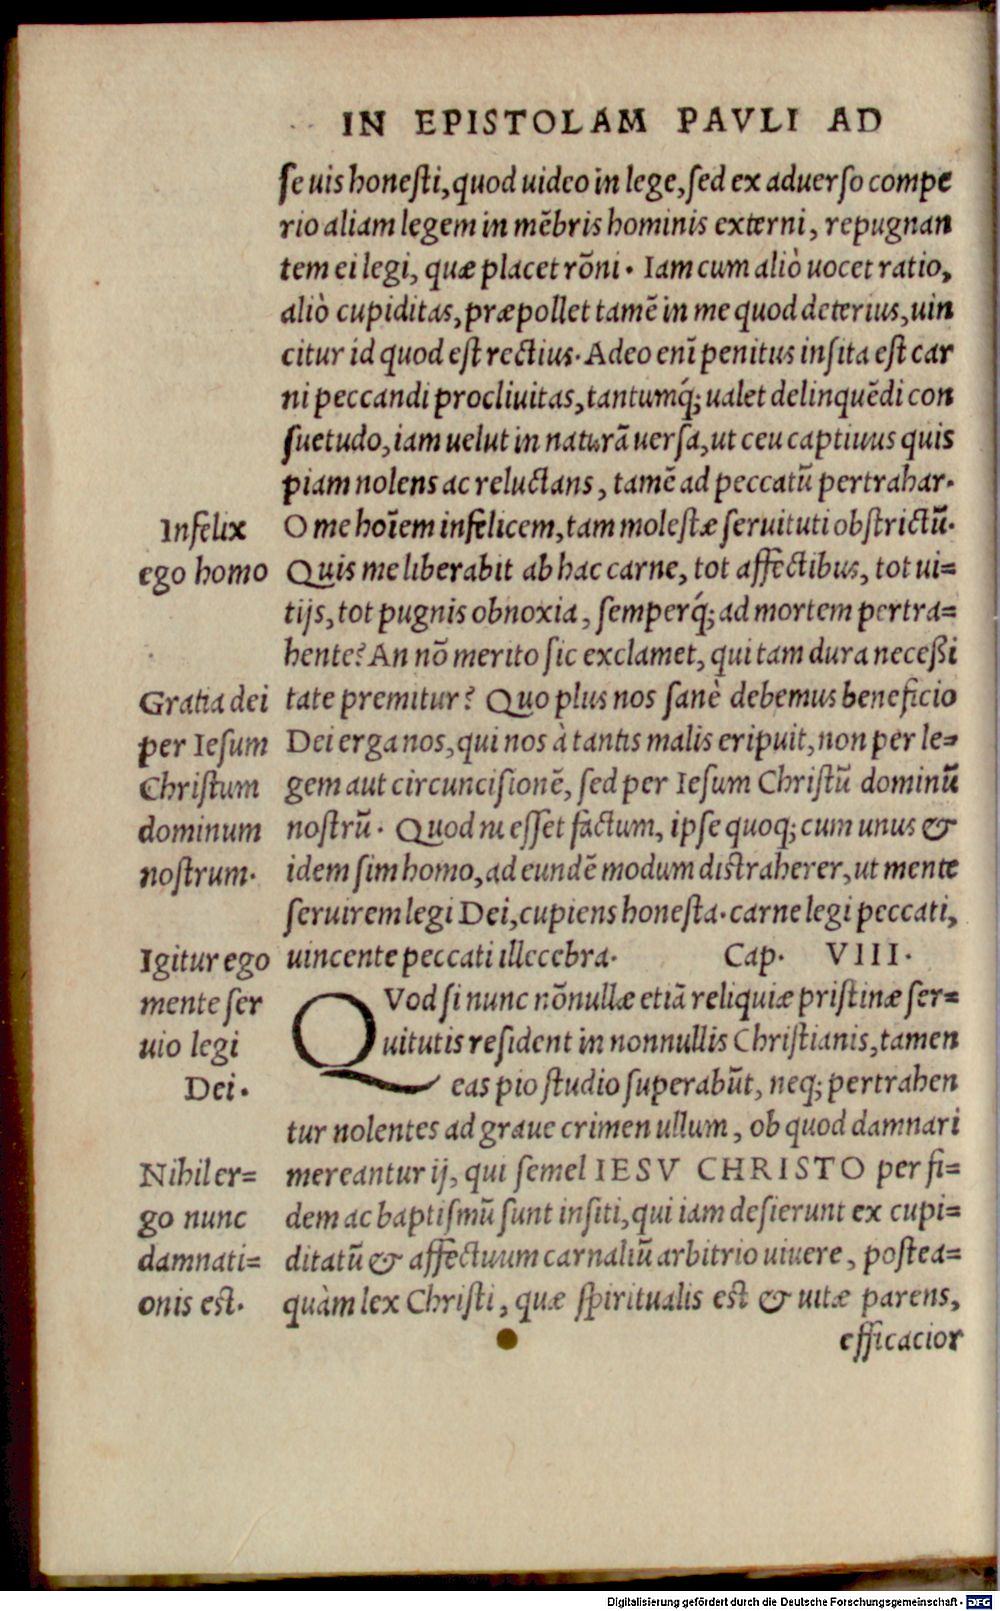 IN EPISTOLAM PAVLI AD
se uis honesti, quod uideo in lege, sed ex aduerso compe
rio aliam legem in mẽbris hominis externi, repugnan
tem ei legi, quæ placet rõni. Iam cum aliò uocet ratio,
aliò cupiditas, præpollet tamẽ in me quod deterius, uin
citur id quod est rectius. Adeo enĩ penitus insita est car
ni peccandi procliuitas, tantumq́; ualet delinquẽdi con
suetudo, iam uelut in naturã uersa, ut ceu captiuus quis
piam nolens ac reluctans, tamẽ ad peccatũ pertrahar.
Infelix
ego homo
O me hoĩem infelicem, tam molestæ seruituti obstrictũ.
Quis me liberabit ab hac carne, tot affectibus, tot ui=
tijs, tot pugnis obnoxia, semperq́; ad mortem pertra=
hente? An nõ merito sic exclamet, qui tam dura necessi
Gratia dei
per Iesum
Christum
dominum
nostrum.
tate premitur? Quo plus nos sanè debemus beneficio
Dei erga nos, qui nos à tantis malis eripuit, non per le=
gem aut circuncisionẽ, sed per Iesum Christũ dominũ
nostrũ. Quod ni esset factum, ipse quoq; cum unus &
idem sim homo, ad eundẽ modum distraherer, ut mente
seruirem legi Dei, cupiens honesta. carne legi peccati,
Igitur ego
mente ser
uio legi
Dei.
uincente peccati illecebra. Cap. VIII.
QVod si nunc nõnullæ etiã reliquiæ pristinæ ser=
uitutis resident in nonnullis Christianis, tamen
eas pio studio superabũt, neq; pertrahen
tur nolentes ad graue crimen ullum, ob quod damnari
Nihil er=
go nunc
damnati=
onis est.
mereantur ij, qui semel IESV CHRISTO per fi=
dem ac baptismũ sunt insiti, qui iam desierunt ex cupi=
ditatũ & affectuum carnaliũ arbitrio uiuere, postea=
quàm lex Christi, quæ spiritualis est & uitæ parens,
efficacior
Digitalisierung gefördert durch die Deutsche Forschungsgemeinschaft - DFG